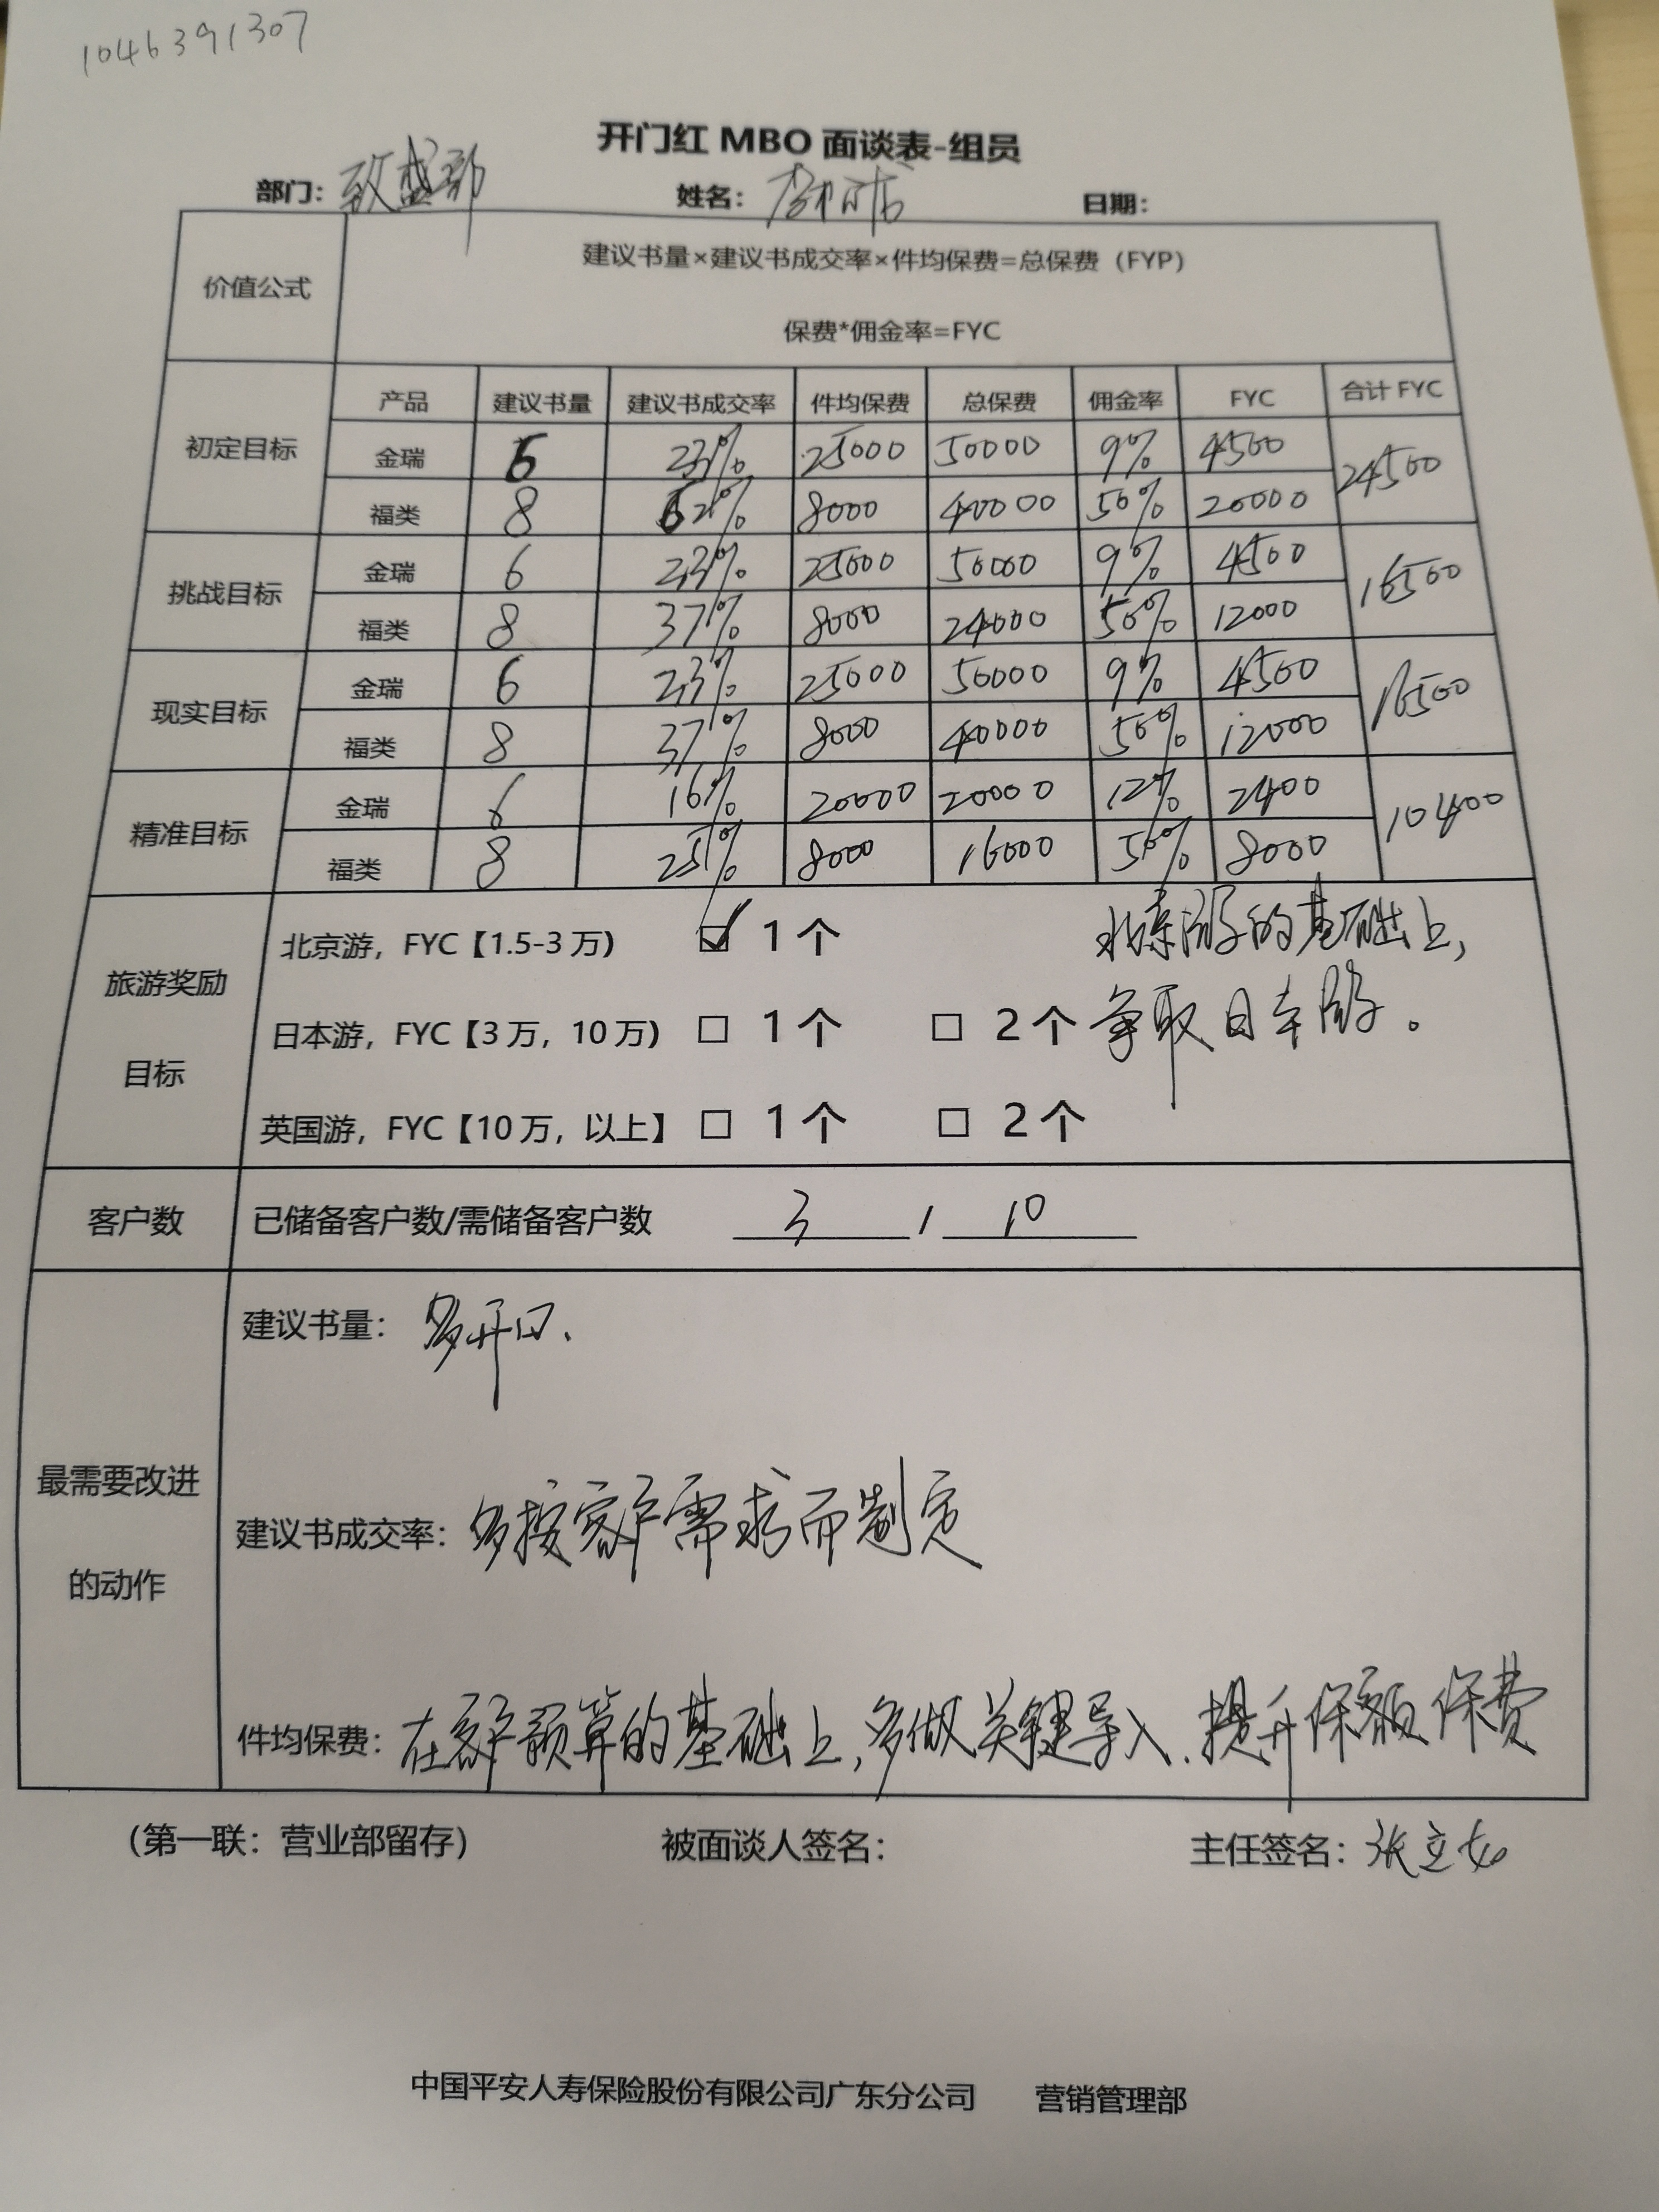 1046391307
开门红 MBO 面谈表-组员
部门: 致盛部 姓名: 日期:
价值公式
建议书量×建议书成交率×件均保费=总保费（FYP）
保费*佣金率=FYC
初定目标
产品 建议书量 建议书成交率 件均保费 总保费 佣金率 FYC 合计 FYC
金瑞 6 23% 25000 50000 9% 4500 24500
福类 8 62% 8000 40000 50% 20000
挑战目标
金瑞 6 23% 25000 50000 9% 4500 16500
福类 8 37% 8000 24000 50% 12000
现实目标
金瑞 6 23% 25000 50000 9% 4500 16500
福类 8 37% 8000 40000 50% 12000
精准目标
金瑞 6 16% 20000 20000 12% 2400 10400
福类 8 25% 8000 16000 50% 8000
旅游奖励
目标
北京游，FYC【1.5-3 万） ☑ 1 个 北京游的基础上，
日本游，FYC【3 万，10 万） □ 1 个 □ 2 个 争取日本游。
英国游，FYC【10 万，以上】 □ 1 个 □ 2 个
客户数 已储备客户数/需储备客户数 3 / 10
最需要改进
的动作
建议书量： 多开口、
建议书成交率：多按客户需求而制定
件均保费：在客户预算的基础上，多做关键导入、提升保额保费
（第一联：营业部留存） 被面谈人签名： 主任签名：张立
中国平安人寿保险股份有限公司广东分公司 营销管理部